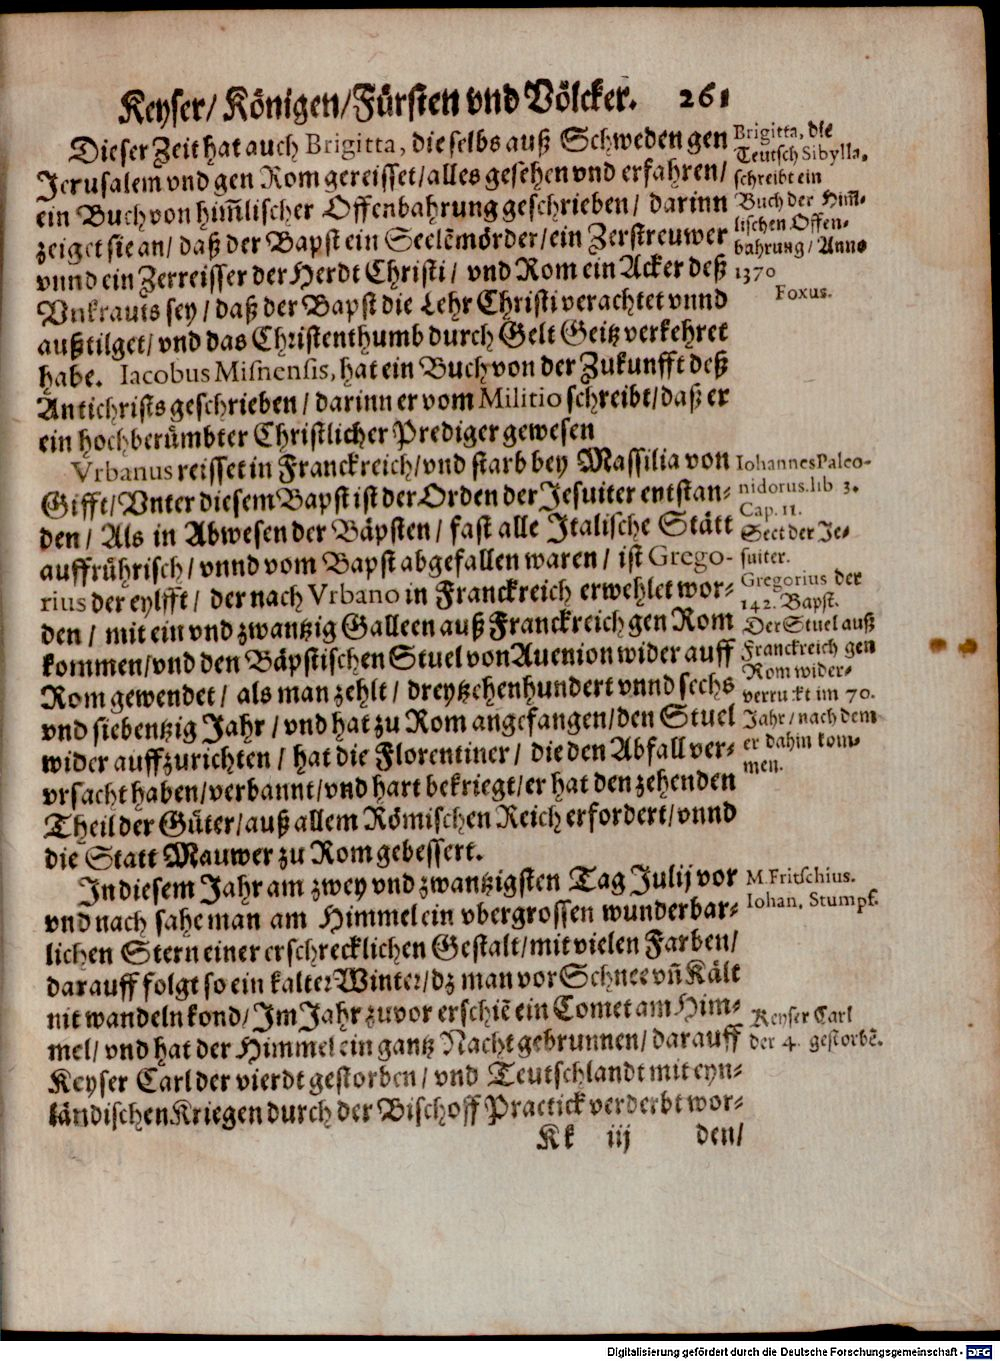 Keyser/ Königen/Fürsten vnd Völcker. 261
Dieser Zeit hat auch Brigitta, die selbs auß Schweden gen
Jerusalem vnd gen Rom gereisset/alles gesehen vnd erfahren/
ein Buch von him̃lischer Offenbahrung geschrieben/ darinn
zeiget sie an/ daß der Bapst ein Seelẽmörder/ein Zerstreuwer
vnnd ein Zerreisser der Herdt Christi/ vnd Rom ein Acker deß
Vnkrauts sey/ daß der Bapst die Lehr Christi verachtet vnnd
außtilget/ vnd das Christenthumb durch Gelt Geitz verkehret
habe. Iacobus Misnensis, hat ein Buch von der Zukunfft deß
Antichrists geschrieben/ darinn er vom Militio schreibt/daß er
ein hochberümbter Christlicher Prediger gewesen
Vrbanus reisset in Franckreich/vnd starb bey Massilia von
Gifft/Vnter diesem Bapst ist der Orden der Jesuiter entstan-
den/ Als in Abwesen der Bäpsten/ fast alle Italische Stätt
auffrührisch/ vnnd vom Bapst abgefallen waren/ ist Grego-
rius der eylfft/ der nach Vrbano in Franckreich erwehlet wor-
den/ mit ein vnd zwantzig Galleen auß Franckreich gen Rom
kommen/vnd den Bäpstischen Stuel von Auenion wider auff
Rom gewendet/ als man zehlt/ dreytzehenhundert vnnd sechs
vnd siebentzig Jahr/ vnd hat zu Rom angefangen/den Stuel
wider auffzurichten/ hat die Florentiner/ die den Abfall ver-
vrsacht haben/verbannt/vnd hart bekriegt/er hat den zehenden
Theil der Güter/auß allem Römischen Reich erfordert/vnnd
die Statt Mauwer zu Rom gebessert.
In diesem Jahr am zwey vnd zwantzigsten Tag Julij vor
vnd nach sahe man am Himmel ein vbergrossen wunderbar-
lichen Stern einer erschrecklichen Gestalt/mit vielen Farben/
darauff folgt so ein kalter Winter/dz man vor Schnee vñ Kält
nit wandeln kond/Im Jahr zuvor erschiẽ ein Comet am Him-
mel/ vnd hat der Himmel ein gantz Nacht gebrunnen/darauff
Keyser Carl der vierdt gestorben/ vnd Teutschlandt mit eyn-
ländischen Kriegen durch der Bischoff Practick verderbt wor-
Kk iij den/
Brigitta, die
Teutsch Sibylla,
schreibt ein
Buch der Him̃-
lischen Offen-
bahrung/ Anno
1370
Foxus.
Iohannes Paleo-
nidorus. lib 3.
Cap. 11.
Sect der Je-
suiter.
Gregorius der
142. Bapst.
Der Stuel auß
Franckreich gen
Rom wider-
verruckt im 70.
Jahr/ nach dem
er dahin kom-
men.
M. Fritschius.
Iohan, Stumpf.
Keyser Carl
der 4. gestorbẽ.
Digitalisierung gefördert durch die Deutsche Forschungsgemeinschaft - DFG